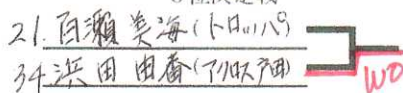 21. 百瀬 美海(トロッパ)
34 浜田 由香(アクロス戸田)
WO